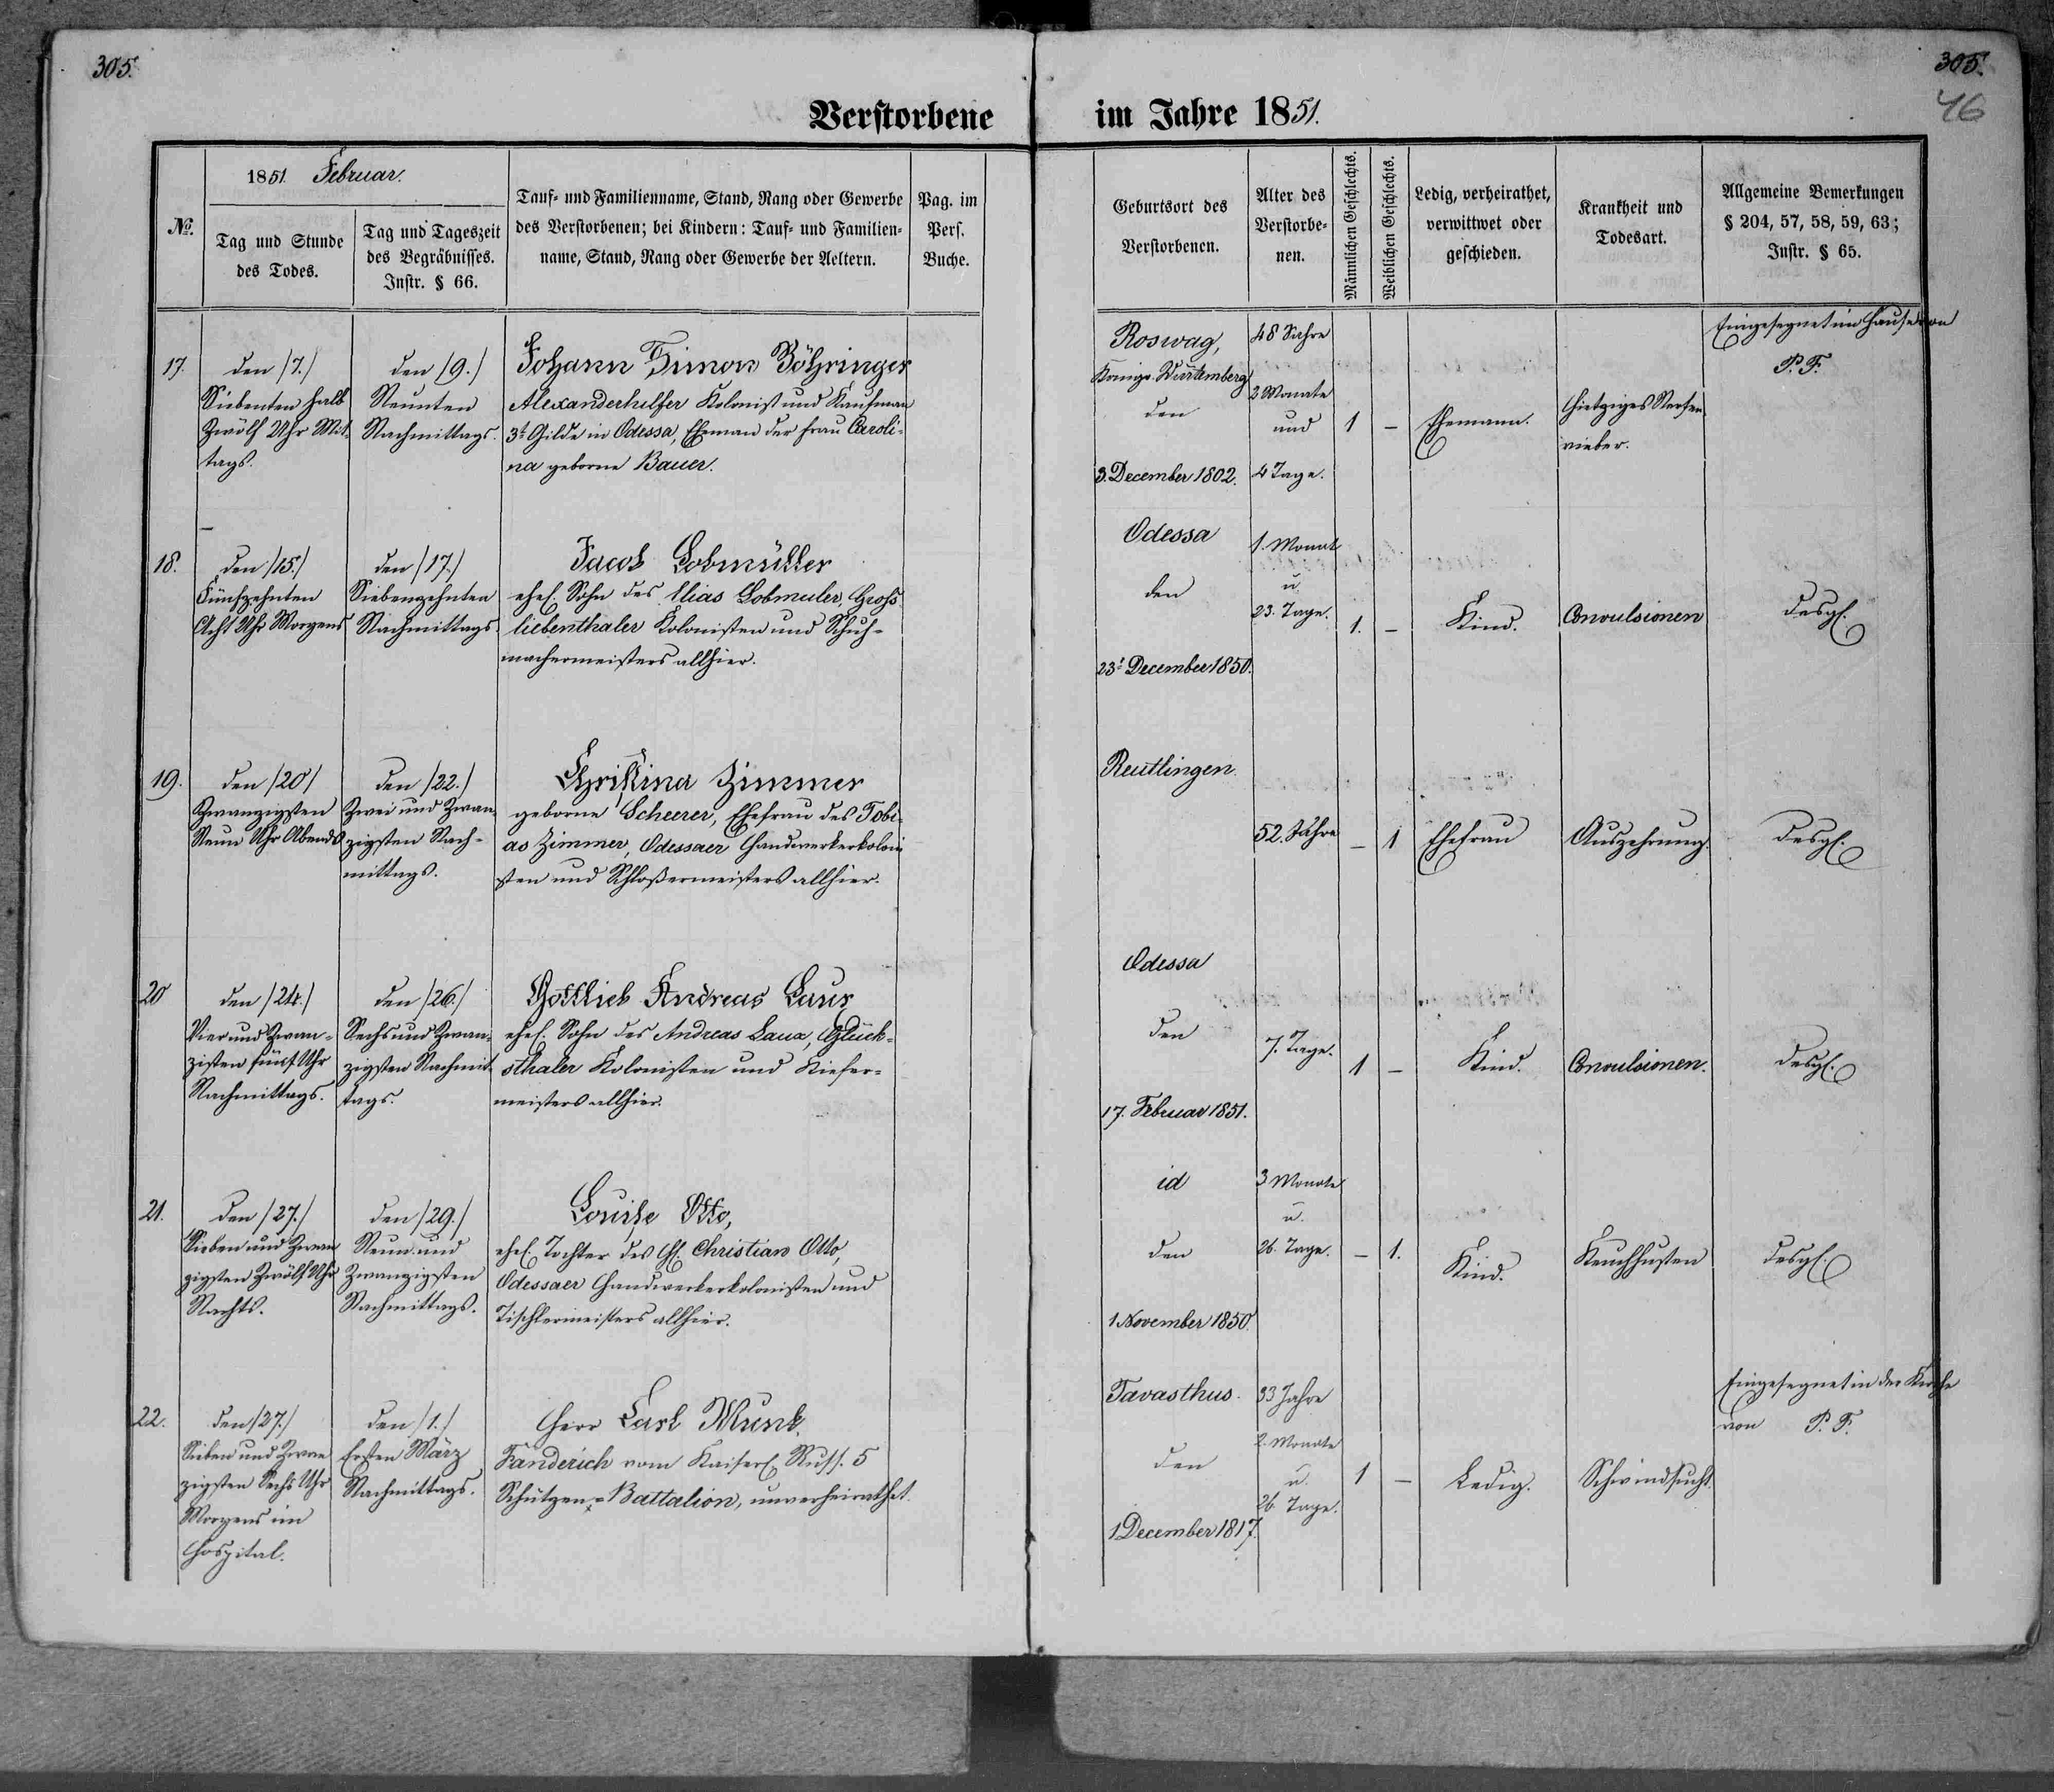 305.
305.
46
Verstorbene im Jahre 1851.
№.
1851 Februar.
Tag und Stunde
des Todes.
Tag und Tageszeit
des Begräbnisses.
Instr. § 66.
Tauf- und Familienname, Stand, Rang oder Gewerbe
des Verstorbenen; bei Kindern: Tauf- und Familien-
name, Stand, Rang oder Gewerbe der Aeltern.
Pag. im
Pers.
Buche.
Geburtsort des
Verstorbenen.
Alter des
Verstorbe-
nen.
Männlichen Geschlechts.
Weiblichen Geschlechts.
Ledig, verheirathet,
verwittwet oder
geschieden.
Krankheit und
Todesart.
Allgemeine Bemerkungen
§ 204, 57, 58, 59, 63;
Instr. § 65.
17.
den /7./
Siebenten halb
Zwölf Uhr Mit-
tags.
den /9./
Neunten
Nachmittags.
Johann Simon Böhringer
Alexanderhilfer Kolonist und Kaufman
3t Gilde in Odessa, Eheman der Frau Caroli-
na geborne Bauer.
Roswag,
Königr. Würtemberg
den
3. December 1802.
48 Jahre
2 Monate
und
4 Tage.
1
–
Ehemann.
Hietziges Nerfen
vieber.
Eingesegnet im Hause von
P. F.
18.
den /15./
Fünfzehnten
Acht Uhr Morgens
den /17./
Siebenzehnten
Nachmittags.
Jacob Lobmüller
ehel. Sohn des Elias Lobmuler, Gross
liebenthaler Kolonisten und Schuh-
machermeisters allhier.
Odessa
den
23t December 1850.
1. Monat
u.
23. Tage.
1.
–
Kind.
Convulsionen
desgl.
19.
den /20/
Zwanzigsten
Neun Uhr Abends
den /22./
Zwei und Zwan-
zigsten Nach-
mittags.
Christina Zimmer
geborne Scheerer, Ehefrau des Tobi-
as Zimmer, Odessaer Handwerkerkoloni
sten und Schloßermeisters allhier.
Reutlingen.
52. Jahre
–
1
Ehefrau
Auszehrung.
desgl.
20
den /24./
Vier und Zwan-
zisten fünf Uhr
Nachmittags.
den /26./
Sechs und Zwan-
zigsten Nachmit-
tags.
Gottlieb Andreas Laux
ehel. Sohn des Andreas Laux, Glück-
sthaler Kolonisten und Kiefer-
meisters allhier.
Odessa
den
17. Februar 1851.
7. Tage.
1
–
Kind.
Convulsionen.
desgl.
21.
den /27./
Sieben und Zwan
zigsten Zwölf Uhr
Nachts.
den /29./
Neun und
Zwanzigsten
Nachmittags.
Louise Otto,
ehel. Tochter des Christian Otto,
Odessaer Handwerkerkolonisten und
Tischlermeisters allhier.
id
den
1 November 1850.
3 Monate
u.
26. Tage.
–
1.
Kind.
Keuchhusten
desgl.
22.
den /27./
Sieben und Zwan
zigsten Sechs Uhr
Morgens im
Hospital.
den /1./
Ersten März
Nachmittags.
Herr Carl Munk.
Fänderich vom Kaiserl. Russ. 5
Schützen-Battalion, unverheirathet.
Tavasthus.
den
1 December 1817.
33 Jahre
2. Monate
u.
26. Tage.
1
–
Ledig.
Schwindsucht.
Eingesegnet in der Kirche
von P. F.